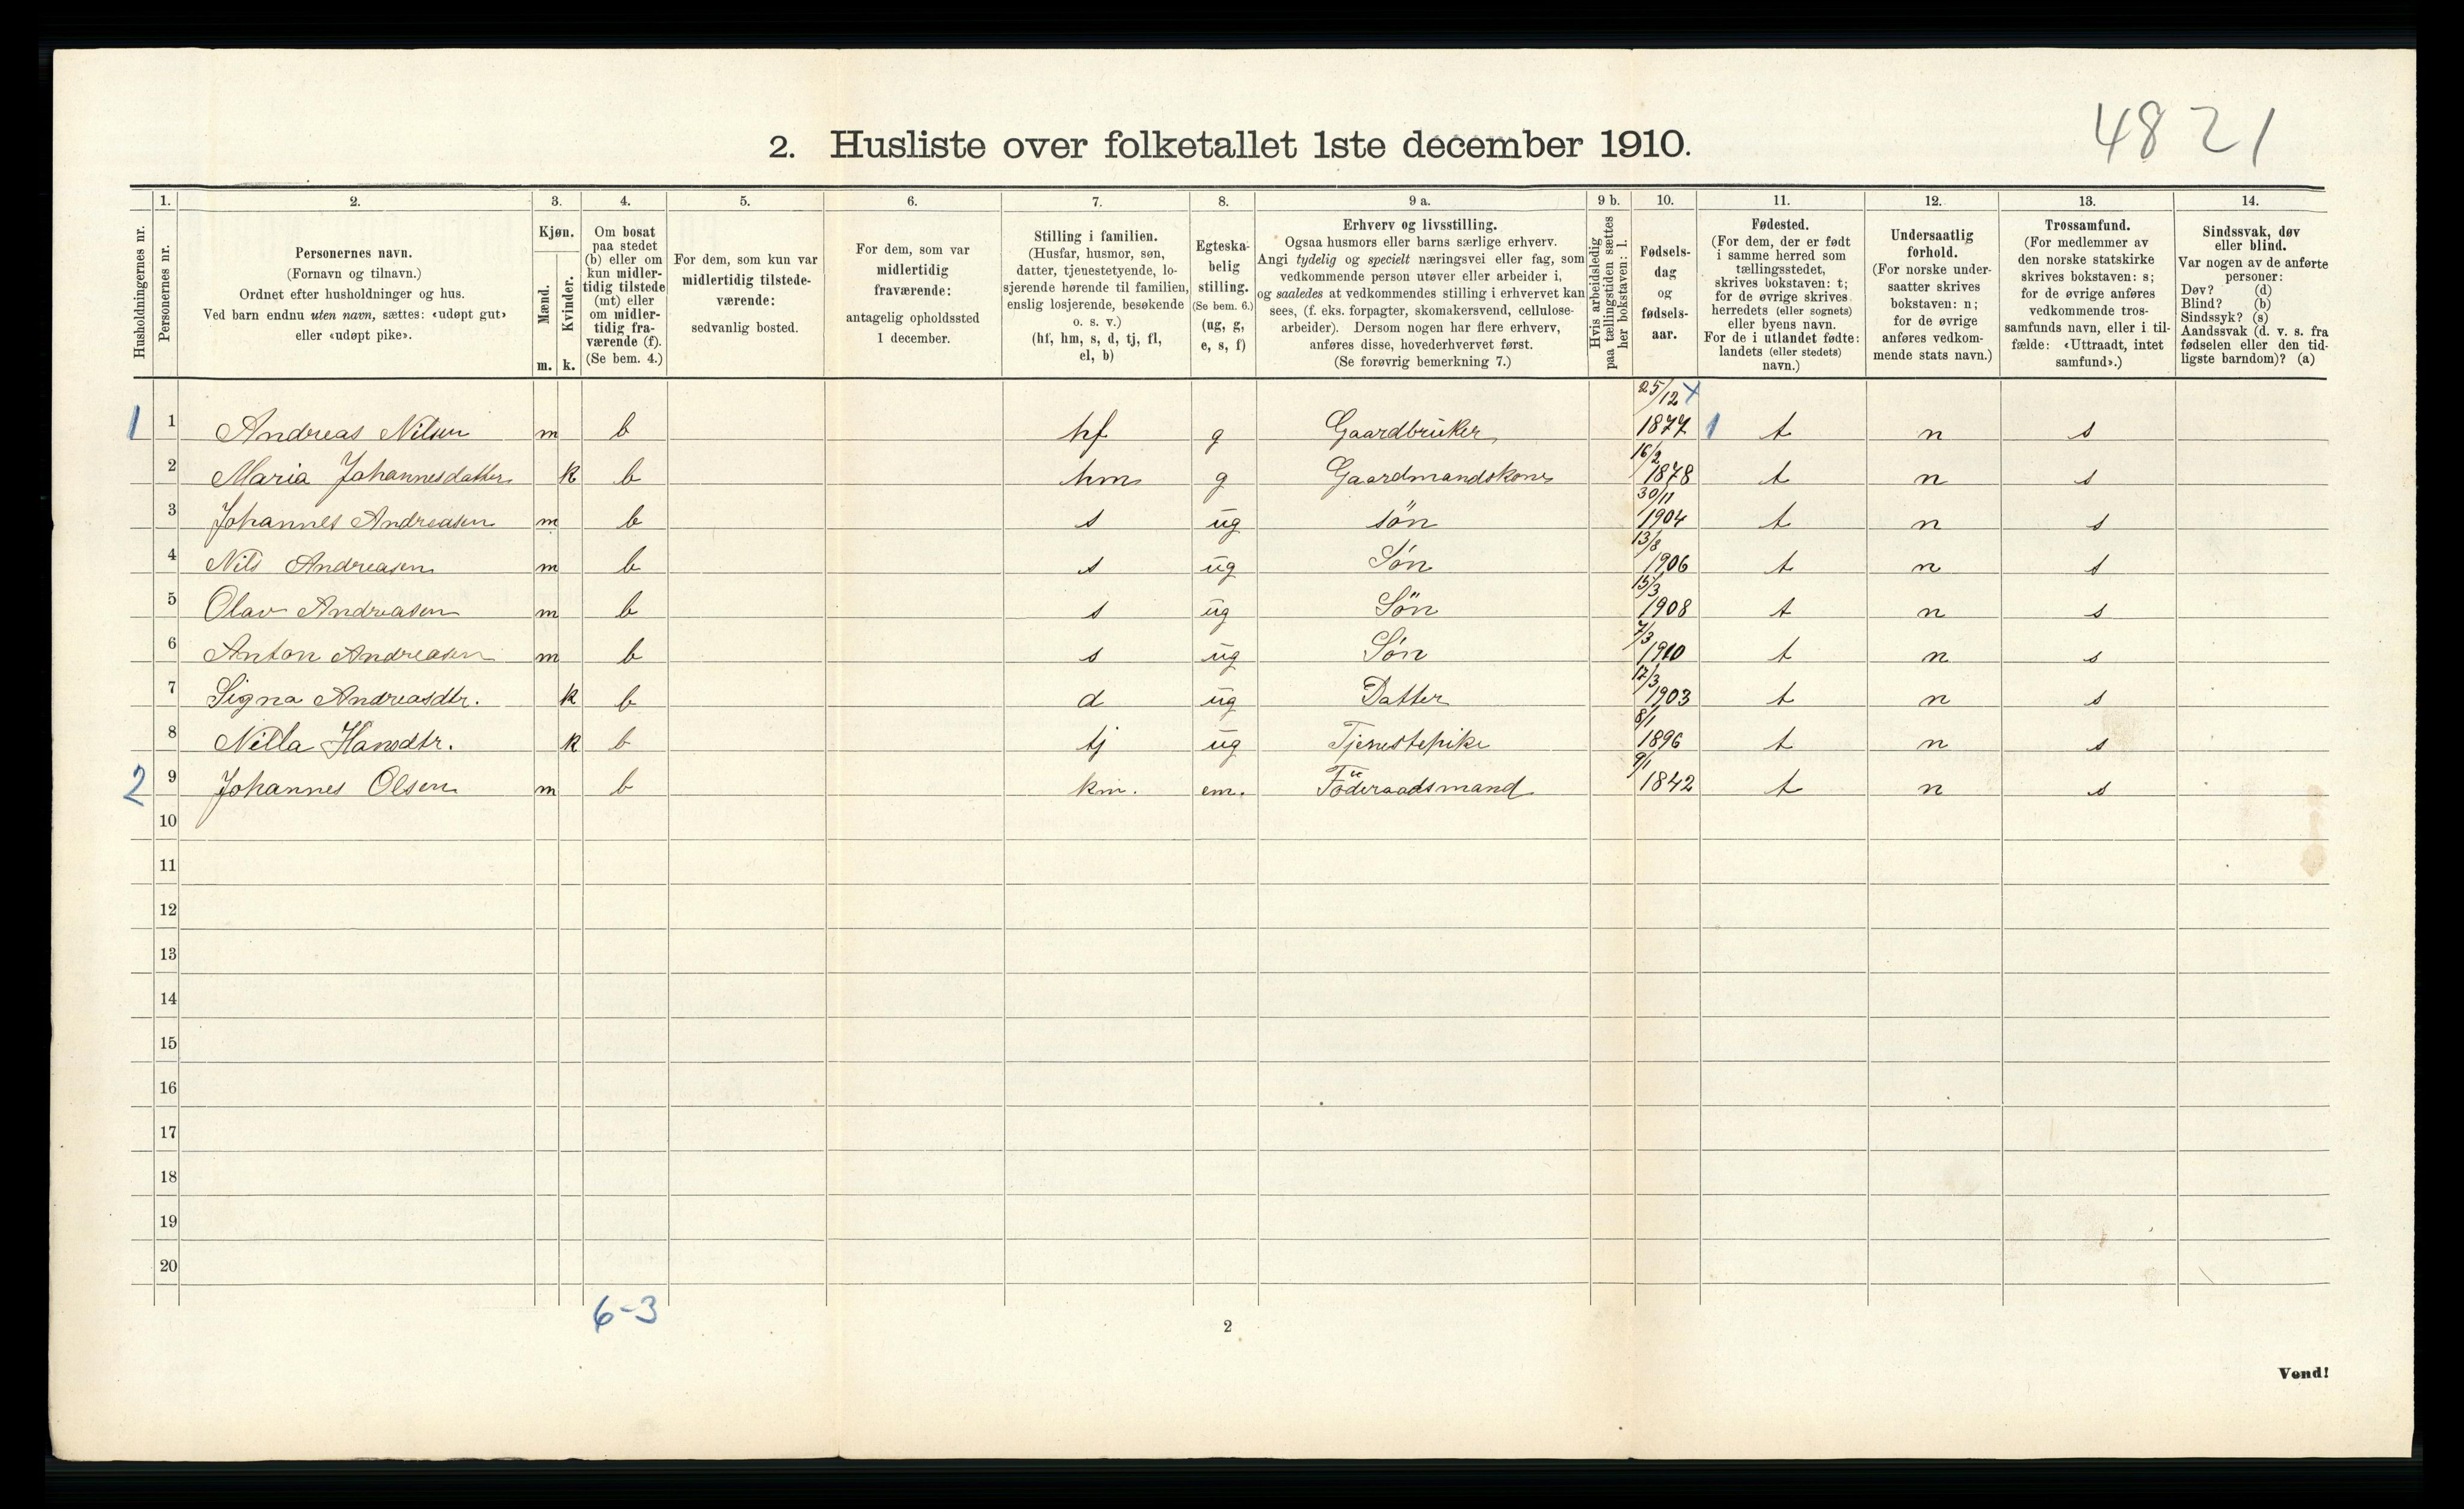 4821
2. Husliste over folketallet 1ste december 1910.
Husholdningernes nr.
1.
Personernes nr.
2.
Personernes navn.
(Fornavn og tilnavn.)
Ordnet efter husholdninger og hus.
Ved barn endnu uten navn, sættes: «udøpt gut»
eller «udøpt pike».
3.
Kjøn.
Mænd.
Kvinder.
m. k.
4.
Om bosat
paa stedet
(b) eller om
kun midler-
tidig tilstede
(mt) eller
om midler-
tidig fra-
værende (f).
(Se bem. 4.)
5.
For dem, som kun var
midlertidig tilstede-
værende:
sedvanlig bosted.
6.
For dem, som var
midlertidig
fraværende:
antagelig opholdssted
1 december.
7.
Stilling i familien.
(Husfar, husmor, søn,
datter, tjenestetyende, lo-
sjerende hørende til familien,
enslig losjerende, besøkende
o. s. v.)
(hf, hm, s, d, tj, fl,
el, b)
8.
Egteska-
belig
stilling.
(Se bem. 6.)
(ug, g,
e, s, f)
9 a.
Erhverv og livsstilling.
Ogsaa husmors eller barns særlige erhverv.
Angi tydelig og specielt næringsvei eller fag, som
vedkommende person utøver eller arbeider i,
og saaledes at vedkommendes stilling i erhvervet kan
sees, (f. eks. forpagter, skomakersvend, cellulose-
arbeider). Dersom nogen har flere erhverv,
anføres disse, hovederhvervet først.
(Se forøvrig bemerkning 7.)
9 b.
Hvis arbeidsledig
paa tællingstiden sættes
her bokstaven: l.
10.
Fødsels-
dag
og
fødsels-
aar.
11.
Fødested.
(For dem, der er født
i samme herred som
tællingsstedet,
skrives bokstaven: t;
for de øvrige skrives
herredets (eller sognets)
eller byens navn.
For de i utlandet fødte:
landets (eller stedets)
navn.)
12.
Undersaatlig
forhold.
(For norske under-
saatter skrives
bokstaven: n;
for de øvrige
anføres vedkom-
mende stats navn.)
13.
Trossamfund.
(For medlemmer av
den norske statskirke
skrives bokstaven: s;
for de øvrige anføres
vedkommende tros-
samfunds navn, eller i til-
fælde: «Uttraadt, intet
samfund».)
14.
Sindssvak, døv
eller blind.
Var nogen av de anførte
personer:
Døv? (d)
Blind? (b)
Sindssyk? (s)
Aandssvak (d. v. s. fra
fødselen eller den tid-
ligste barndom)? (a)
1 1 Andreas Nilsen m b hf g Gaardbruker 25/12 1877 1 t n s
2 Maria Johannesdatter k b hm g Gaardmandskone 16/2 1878 t n s
3 Johannes Andreasen m b s ug søn 30/11 1904 t n s
4 Nils Andreasen m b s ug Søn 13/8 1906 t n s
5 Olav Andreasen m b s ug Søn 15/3 1908 t n s
6 Anton Andreasen m b s ug Søn 7/3 1910 t n s
7 Signa Andreasdtr. k b d ug Datter 12/3 1903 t n s
8 Nilla Hansdtr. k b tj ug Tjenestepike 8/1 1896 t n s
2 9 Johannes Olsen m b km. em. Föderaadsmand 9/1 1842 t n s
10
11
12
13
14
15
16
17
18
19
20
6-3
2
Vend!